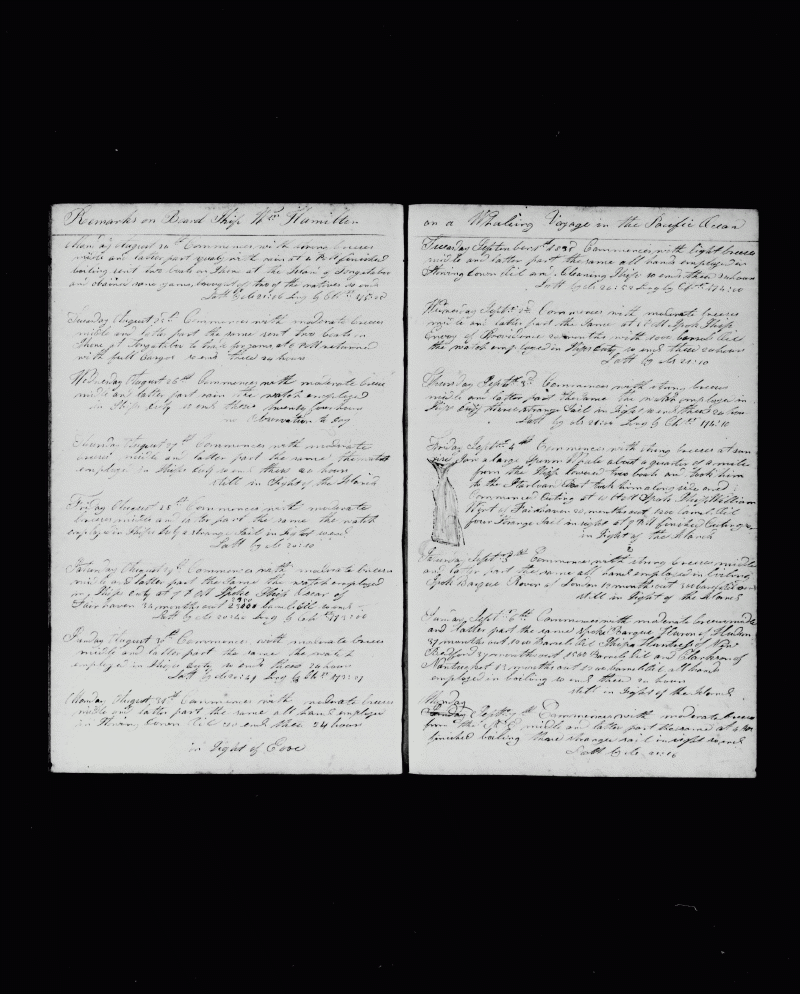 Remarks on Board Ship Wm Hamilton
Monday August 24th Commences with strong breeses
midle and latter part squaly with rain at 6 PM finished
boiling sent two boats on Shore at the Island of Tongataboo
and obtained some yams, brought off two of the natives so ends
Latt by Ob 21:06 Long by Chr
Tuesday August 25th Commences with moderate breeses
midle and latter part the same sent two boats in
Shore at Tongataboo to trade for yams at 6 PM returned
with full cargos so ends these 24 hours
Wednesday August 26th Commences with moderate breeses
midle and latter part rain the watch employed
in Ships duty so ends these twenty four hours
no Observation to Day
Thursday August 27th Commences with moderate
breeses midle and latter part the same the watch
employed in Ships duty so ends these 24 hours
still in Sight of the Island
Friday August 28th Commences with moderate
breeses midle and latter part the same the watch
employed in Ships duty a strange Sail in Sight so ends
Latt by Ob 20:10
Saturday August 29th Commences with moderate breeses
midle and latter part the same the watch employed
in Ships duty at 9 PM Spoke Ship Oscar of
Fairhaven 34 months out barrels oil so ends
Latt by Ob 20:20 Long by Chr
Sunday August 30th Commences with moderate breeses
midle and latter part the same the watch
employed in Ships duty so ends these 24 hours
Latt by Ob 21:29 Long by Chr 173:31
Monday August 31st Commences with moderate breeses
midle and latter part the same all hands employed
in Stowing down Oil so ends these 24 hours
in Sight of Eooe
on a Whaling Voyage in the Pacific Ocean
Tuesday September 1st 1835 Commences with light breeses
midle and latter part the same all hands employed in
Stowing down Oil and Cleaning Ship so ends these 24 hours
Latt by Ob 20:52 Long by Chr 174:00
Wednesday Septbr 2d Commences with moderate breeses
midle and latter part the same at 5 PM Spoke Ship
Envoy of Providence 20 months with 1500 barrels oil
the watch employed in Ships Duty so ends these 24 hours
Latt by Ob 21:10
Thursday Septbr 3d Commences with strong breeses
midle and latter part the same the watch employed in
Ships duty three strange Sail in Sight so ends these 24 hours
Latt by Ob 21:20 Long by Chr 174:10
Friday Septbr 4th Commences with strong breeses at sun
rise saw a large Sperm Whale about a quarter of a mile
from the Ship lowered two boats and took him
to the Starboard boat took him along side and
Commenced Cuting at 10 AM Spoke Ship William
Wirt of Fairhaven 20 months out 1200 barrels Oil
four Strange Sail in sight at 9 PM finished Cuting
in Sight of the Island
Saturday Septbr 5th Commences with strong breeses midle
and latter part the same all hands employed in boiling
Spoke Barque Rover of London 12 months out 300 barrels oil
still in Sight of the Island
Sunday Septbr 6th Commences with moderate breeses midle
and latter part the same Spoke Barque Huron of Hudson
37 months out 1000 barrels oil Ship Huntress of New
Bedford 37 months out 1500 barrels oil and Clarkson of
Nantucket 12 months out 1200 barrels oil all hands
employed in boiling so ends these 24 hours
still in Sight of the Island
Monday
Sunday Septbr 7th Commences with moderate breeses
from the midle and latter part the same at 4 PM
finished boiling three strange sail in sight so ends
Latt by Ob 21:16